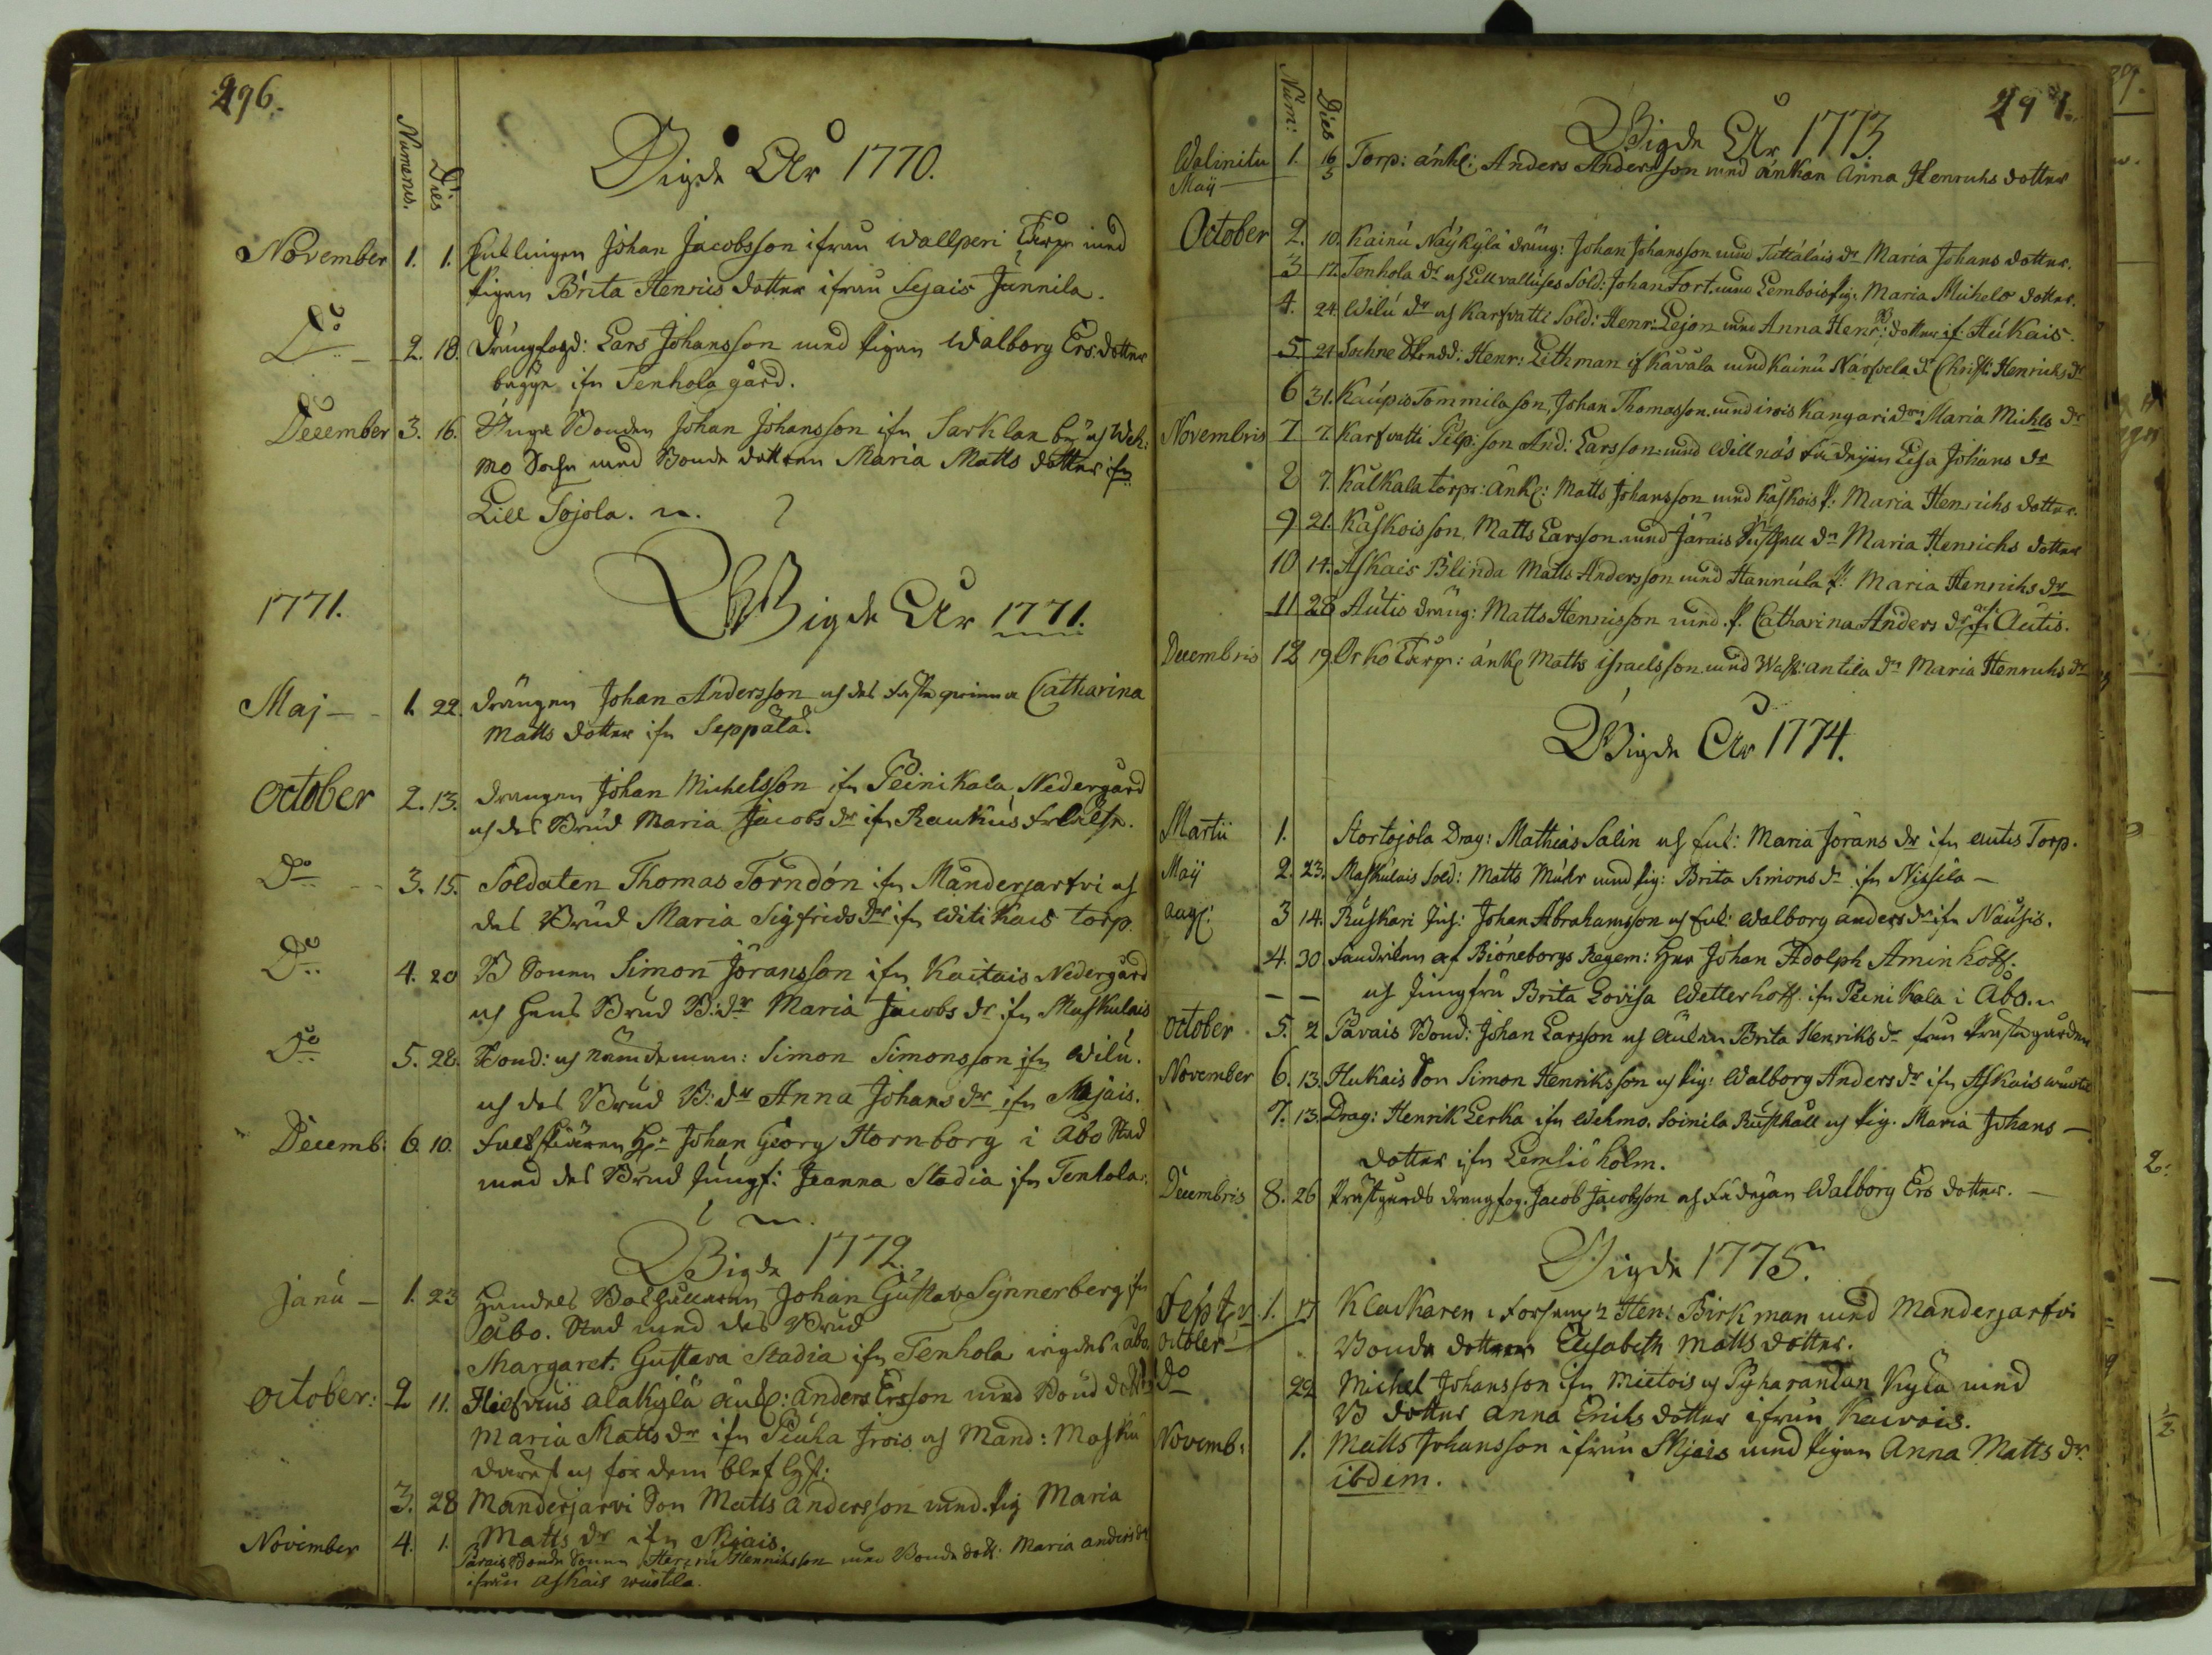 296.
Numerus. Dies
Vigde År 1770.
November 1. 1. Enklingen Johan Jacobsson ifrån Wallperi Torp med
Pigan Brita Henrics dotter ifrån Sejais Junnila.
Do 2. 18. Drängfogd: Lars Johansson med Pigan Walborg Ers dotter
begge ifn Tenhola gård.
December 3. 16. Unge Bonden Johan Johansson ifn Sarklax by af Weh-
mo Sochn med Bonde dottren Maria Matts dotter ifn
Lill Tojola.
1771.
Wigde År 1771.
Maj 1. 22. Drängen Johan Andersson och des fästeqwinna Catharina
Matts dotter ifn Seppälä.
October 2. 13. Drängen Johan Michelsson ifn Peinikala Nedergård
och des Brud Maria Jacobs dr ifn Raukus frälse.
Do 3. 15. Soldaten Thomas Torndón ifn Manderjarfvi och
des Brud Maria Sigfrids dr ifn Witikais torp.
Do 4. 20 B Sonen Simon Jöransson ifn Kaitais Nedergård
och hans Brud B: dr Maria Jacobs dr ifn Maskulais
Do 5. 28. Bond: och nämdeman: Simon Simonsson ifn Wilu.
och des Brud B: dr Anna Johans dr ifn Majais.
Decemb: 6. 10. Hr Johan Georg Hornborg i Åbo Stad
med des Brud Jungf: Jeanna Stadia ifn Tenhola.
Wigde 1772.
Janu 1. 23 Handels Bokhållaren Johan Gustav Synnerberg ifn
Åbo. Stad med des Brud
Margaret. Gustava Stadia ifn Tenhola wigdes i Åbo.
October: 2 11. Alakylä änkl: Anders Ersson med Bond dottr
Maria Matts dr ifn och Mand: Masku
och för dem blef lyst:
3. 28 Manderjarvi Son Matts Andersson med. Pig Maria
Matts dr ifn Skjais.
November 4. 1. Parais Bonde Sonen Henriksson med Bonde dott: Maria Anders dr
ifrån Askais wästila.
297.
Num: Dies
Wigde År 1773
Walinitu 1. 16 Torp: änkl: Anders Andersson med änkan Anna Henrichs dotter
Maij 5
October 2. 10. Kainu Näykylä dräng: Johan Johansson med Tuttälais dr Maria Johans dotter.
3 17. Tenhola dr och Lill vallises Sold: Johan Fort. med Lembois pig: Maria Michels dotter.
4. 24. Wilu dr och Karfvatti Sold: Henr: Lejon med Anna Henr: dotter if Hukais.
5 24 Sochne Henr: Lithman if Kavala med Kainu Närfvela dr Christ: Henrichs dr
6 31. Kaupis Tommila son, Johan Thomasson. med irois Kangari dn Maria Michls dr
Novembris 7. 7. Karfvatti son And: Larsson. med Willnäs Lisa Johans dr
8 7. Kalkala torpr: änkl: Matts Johansson med Kaskois p: Maria Henrichs dotter.
9 21. Kaskois son, Matts Larsson. med Järais Rusthåll dr Maria Henrichs dotter
10 14. Askais Blinda Matts Andersson med Hannula p: Maria Henrichs dr
11 28 Autis dräng: Matts Henricsson med. p. Catharina Anders dr ifn Autis.
Decembris 12 19 Orko Torp: änkl Matts Israelsson. med Wask: antila dr Maria Henrichs dr
Wigde År 1774.
Martii 1. Stortojola Drag: Mathias Salin och Enk: Maria Jörans dr ifn Autis Torp.
Maij 2. 23. Maskulais Sold: Matts Muhr med pig: Brita Simons dr ifn Nissila
Aug: 3 14. Ruskari Johan Abrahamsson och Enk: Walborg Anders dr ifn Nausis.
4. 30 Fendriken af Biörneborgs Regem: Herr Johan Adolph Aminhoff.
och Jungfru Brita Lovisa Wetterhoff ifn Peinikala i Åbo.
October 5. 2 Pavais Bond: Johan Larsson och Änkan Brita Henriks dr från Prästegården
November 6. 13. Hukais Son Simon Henriksson och Pig: Walborg Anders dr ifn Askais
7. 13. Drag: Henrik Lerka ifn Wehmo. Soinila Rusthåll och Pig. Maria Johans
dotter ifn Lemsiö holm.
Decembris 8. 26 Prästgårds drängfog: Jacob Jacobsson och Walborg Ers dotter.
Vigde 1775.
Septr 1. 17 Klockaren i Församl: Hen: Birkman med Manderjarfvi
October Bonde dotteren Elisabeth Matts dotter.
do 22 Michel Johansson ifn Mietois och Pyharandan Kylä med
B dotter Anna Eriks dotter ifrån Kauvois.
Novemb: 1. Matts Johansson ifrån Skjais med Pigan Anna Matts dr.
ibdem.